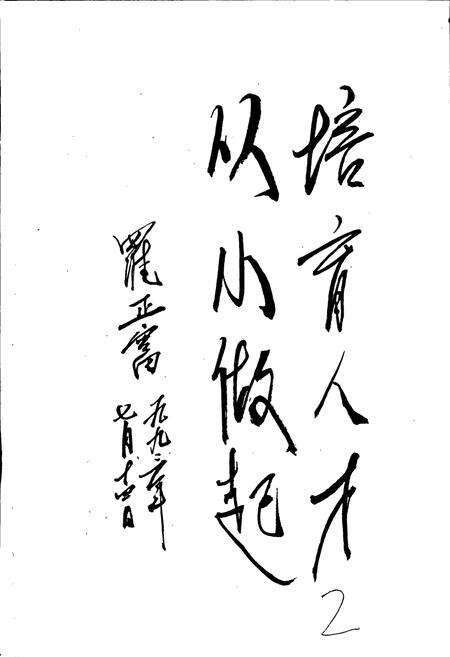 培育人才
从小做起
罗正富
一九九二年
七月十四日
2